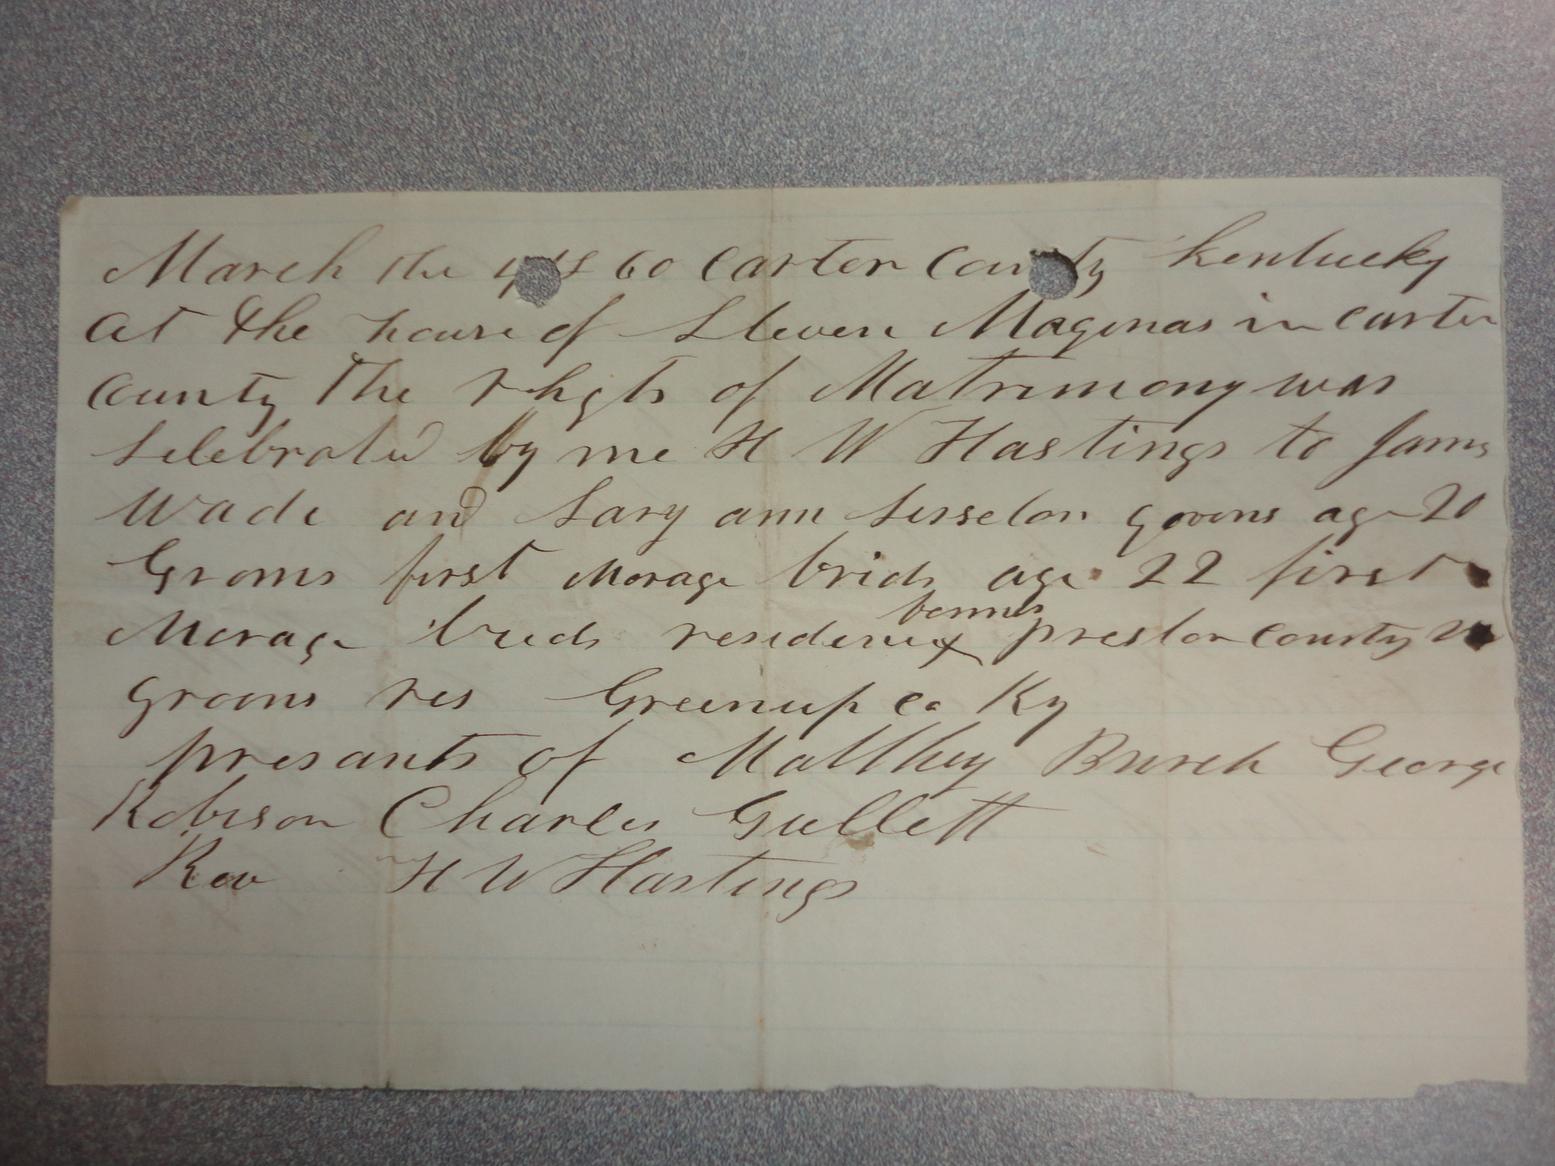 March the 60 Carter County Kentucky
at the house of Steven Maginas in Carter
County the rhghts of Matrimony was
Selebrated by me H W Hastings to James
Wade and Sary ann Sisselon grooms age 20
Grooms first Morage brids age 22 first
Morage brids residence bornds preston County
grooms res Greenup co Ky
presants of Matthey Burch George
Robison Charles Gullett
Rev H W Hastings